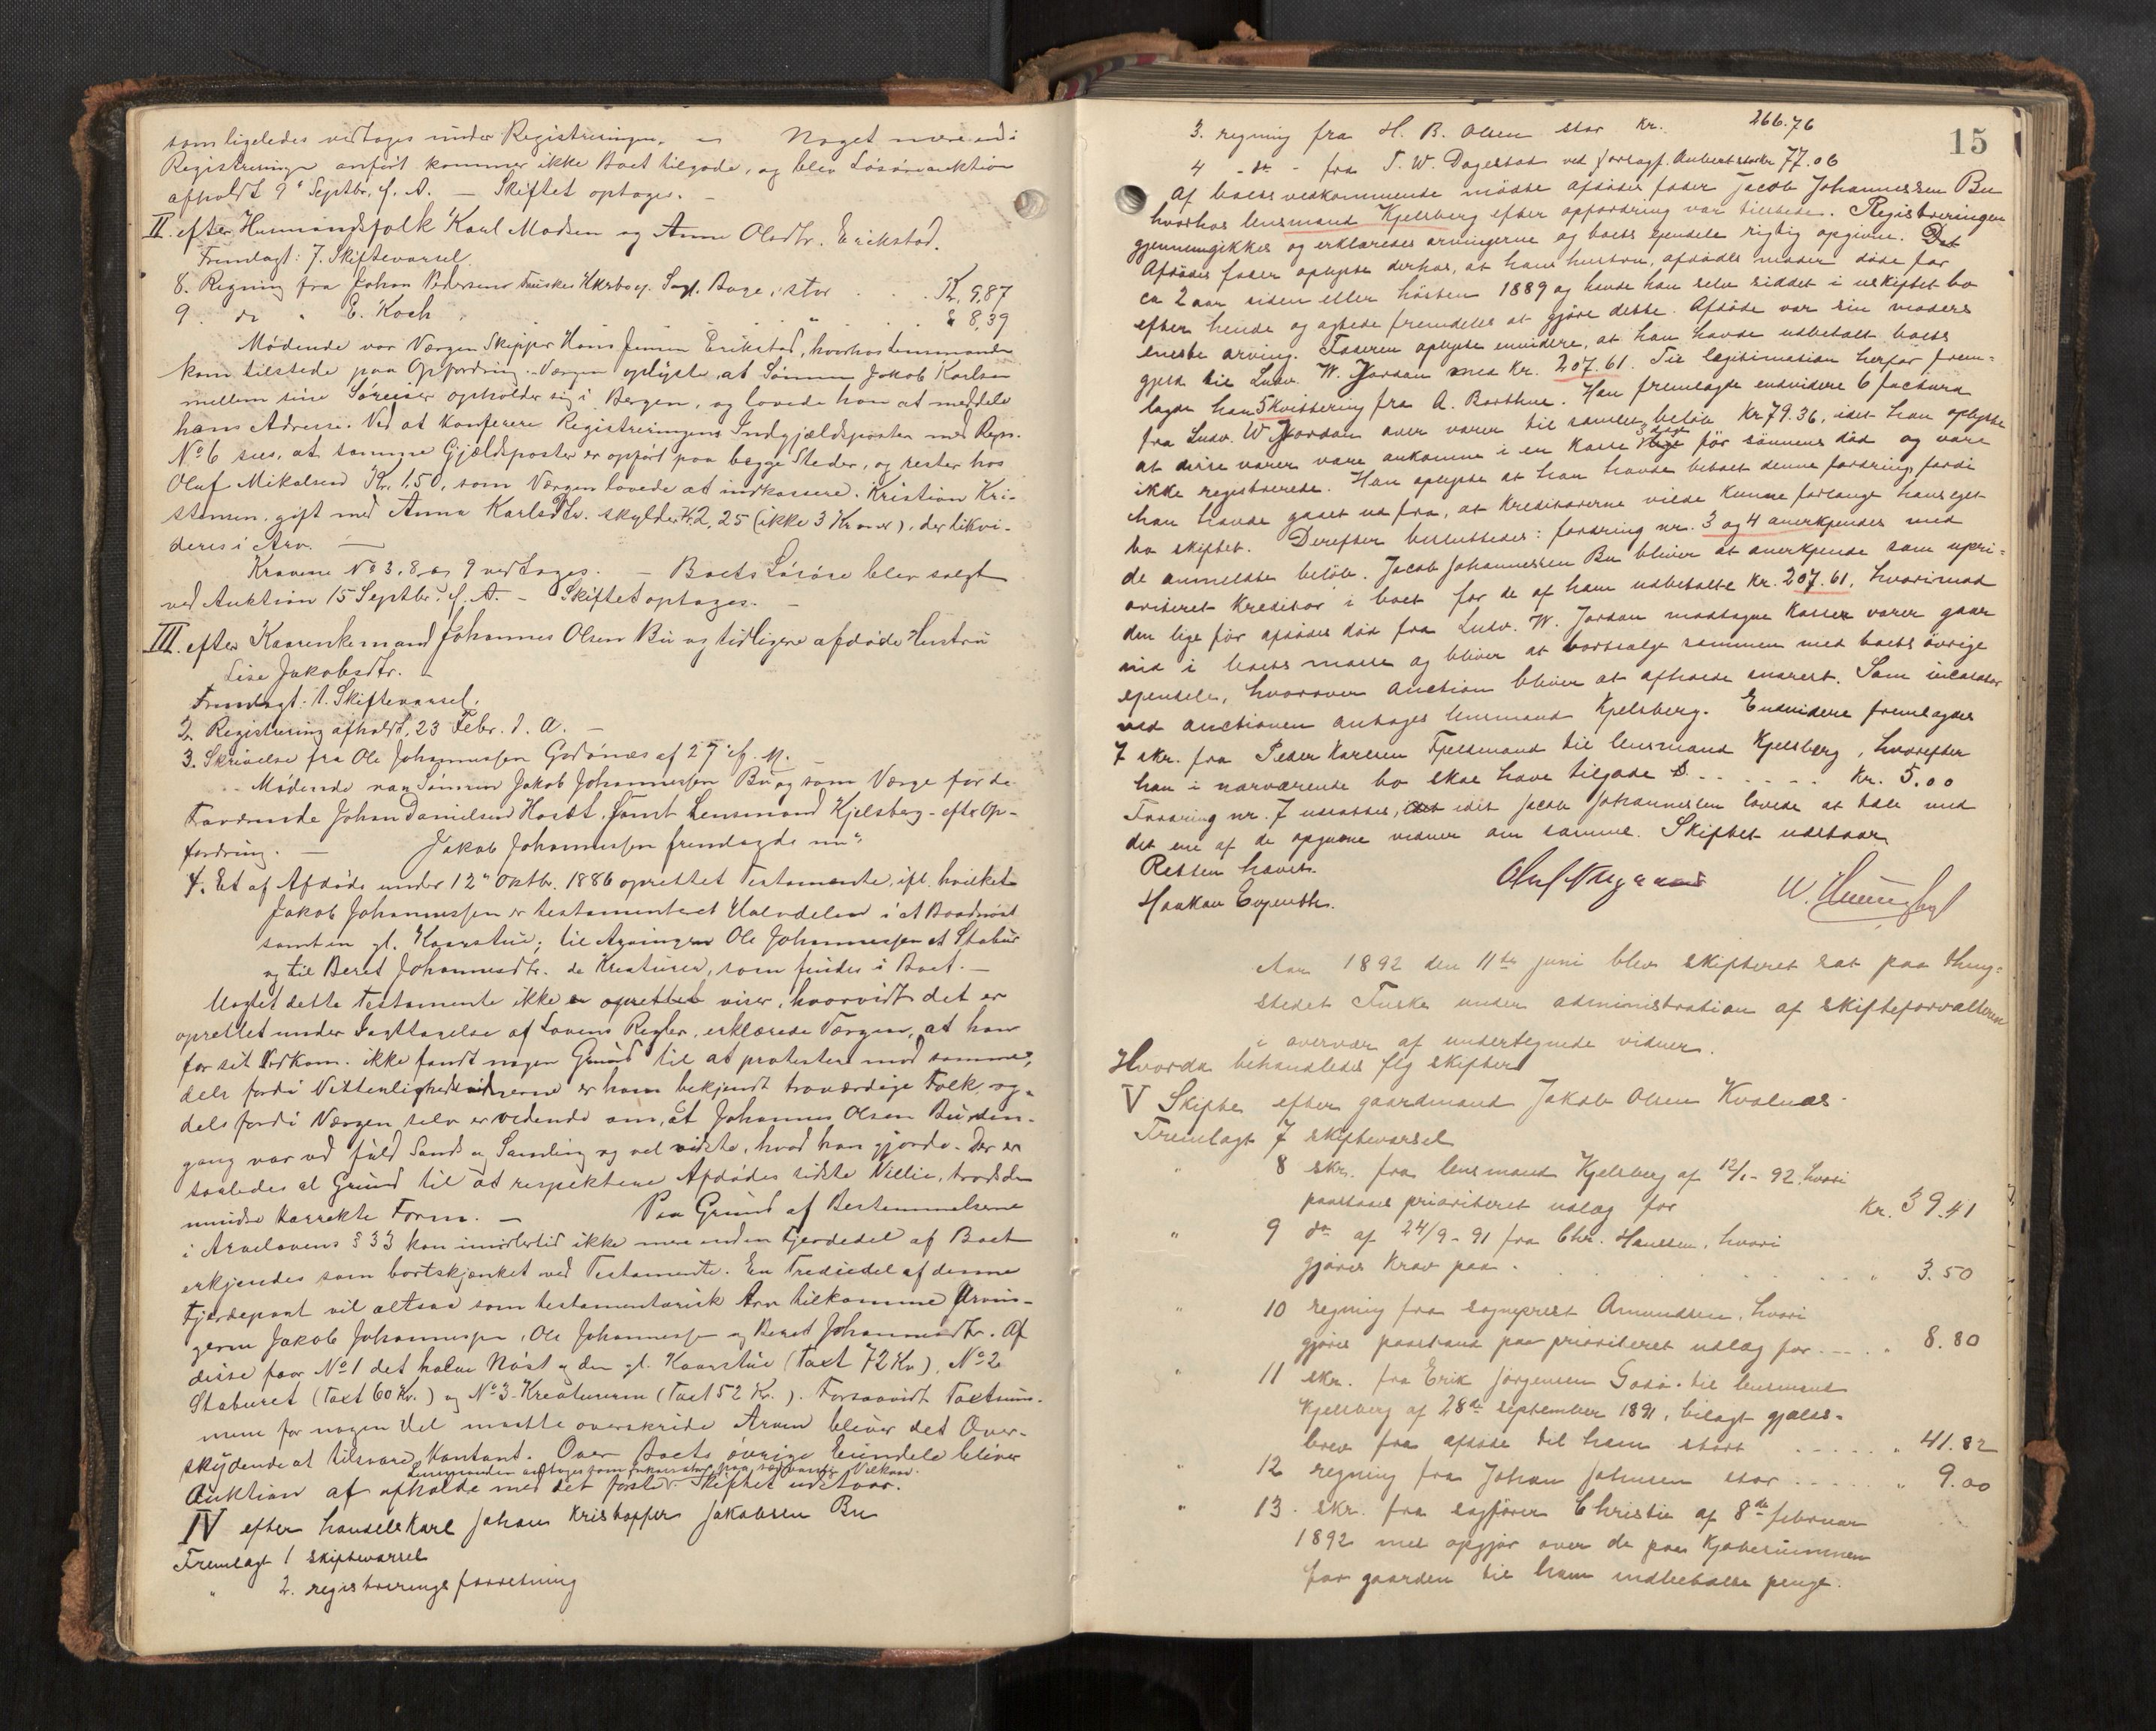 som ligeledes vedtages under Registreringen. — Noget mere end i
Registreringen anført kommer ikke Boet tilgode, og blev Løsøreauktion
afholdt 9de Septbr. f. A. — Skiftet optages. —
II. efter Husmandsfolk Karl Madsen og Anna Olsdtr. Erikstad.
Fremlagt: 7. Skiftevarsel.
8. Regning fra Johan Pedersens Fauskes Sagf. Bage, stor . . . Kr. 9,87
9. do " E. Koch . . . " . . . " 8,39
Mødende var Værgen Skipper Hans Jensen Erikstad, hvorhos Lensmanden
kom tilstede paa Opfordring. Værgen oplyste, at Sønnen Jakob Karlsen
mellem sine Søreiser opholder sig i Bergen, og lovede han at meddele
hans Adresse. Ved at konferere Registreringens Indgjældsposter med Regn.
No 6 sees, at samme Gjældsposter er opført paa begge Steder, og rester hos
Oluf Mikalsen Kr. 1,50, som Værgen lovede at indkassere. Kristian Kri-
stensen gift med Anna Karlsdtr. skylder Kr. 2,25 (ikke 3 Kroner), der likvi-
deres i Arv. —
Kravene No 3, 8 og 9 vedtages. — Boets Løsøre blev solgt
ved Auktion 15 Septbr. f. A. — Skiftet optages. —
III. efter Kaarenkemand Johannes Olsen Bu og tidligere afdøde Hustru
Lise Jakobsdtr. —
Fremlagt: 1. Skiftevarsel.
2. Registrering afholdt 23 Febr. d. A. —
3. Skrivelse fra Ole Johannessen Godønæs af 27 f. M.
Mødende var Sønnen Jakob Johannessen Bu og som Værge for de
Fraværende Johan Danielsen Hoset, samt Lensmand Kjelsberg efter Op-
fordring. — Jakob Johannessen fremlagde nu:
4. Et af Afdøde under 12te Oktbr. 1886 oprettet Testamente, ifl. hvilket
Jakob Johannessen er testamenteret Halvdelen i et Baadnøst
samt en gl. Kaarstue; til Arvingen Ole Johannessen et Stabur
og til Beret Johannesdtr. de Kreaturer, som findes i Boet. —
Uagtet dette Testamente ikke er oprettet viser, hvorvidt det er
oprettet under Iagttagelse af Lovens Regler, erklærede Værgen, at han
for sit Vedkom. ikke fandt nogen Grund til at protestere mod samme,
dels fordi Vitterlighedsvidnerne er ham bekjendt troværdige Folk og
dels fordi Værgen selv er vidende om, at Johannes Olsen Bu den-
gang var ved fuld Sands og Samling og vel vidste, hvad han gjorde. Der er
saaledes al Grund til at respektere Afdødes sidste Villie, trods den
mindre korrekte Form. — Paa Grund af Bestemmelserne
i Arvelovens § 33 kan imidlertid ikke mere end en Fjerdedel af Boet
erkjendes som bortskjænket ved Testamente. En Trediedel af denne
Fjerdepart vil altsaa som testamentarisk Arv tilkomme Arvin-
gerne Jakob Johannessen, Ole Johannessen og Beret Johannesdtr. Af
disse faar No 1 det halve Nøst og den gl. Kaarstue (Taxt 72 Kr.), No 2
Staburet (Taxt 60 Kr.) og No 3 Kreaturerne (Taxt 52 Kr.). Forsaavidt Taxtsum-
mene for nogen Del maatte overskride Arven bliver det Over-
skydende at tilsvare kontant. Over Boets øvrige Eiendele bliver
Lensmanden antages som Inkassator paa sædvanlig Vilkaar.
Auktion at afholde med det første. Skiftet udstaar.
IV efter handelskarl Johan Kristoffer Jakobsen Bu
Fremlagt 1 skiftevarsel
" 2. registreringsforretning
15
3. regning fra H. B. Olsen stor Kr. 266.76
4 do - fra T. W. Dagestad ved forsagf. Aubert stor kr 77.06
Af boets vedkommende mødte afdødes fader Jacob Johannessen Bu
hvorhos lensmand Kjelsberg efter opfordring var tilstede. Registreringen
gjennemgikkes og erklæredes arvingerne og boets eiendele rigtig opgivne. Det
Afdødes fader oplyste derhos, at hans hustru, afdødes moder døde for
ca 2 aar siden eller høsten 1889 og havde han selv siddet i uskiftet bo
efter hende og agtede fremdeles at gjøre dette. Afdøde var sin moders
eneste arving. Faderen oplyste endvidere, at han havde udbetalt boets
gjæld til Ludv. W. Jordan med Kr. 207.61. Til legitimation herfor frem-
lagde han 5 kvittering fra A. Barthue. Han fremlagde endvidere 6 factura
fra Ludv. W. Jordan over varer til samlet beløb Kr 79.36, idet han oplyste
at disse varer vare ankomne i en kasse 3 dage før sønnens død og vare
ikke registrerede. Han oplyste at han havde betalt denne fordring, fordi
han havde gaaet ud fra, at kreditorerne vilde kunne forlange hans eget
bo skiftet. Derefter besluttedes: fordring nr. 3 og 4 anerkjendes med
de anmeldte beløb. Jacob Johannessen Bu bliver at anerkjende som upri-
oriteret kreditor i boet for de af ham udbetalte kr. 207.61, hvorimod
den lige før afdødes død fra Ludv. W. Jordan modtagne kasse varer gaar
ind i boets masse og bliver at bortsælge sammen med boets øvrige
eiendele, hvorover auction bliver at afholde snarest. Som incassator
ved auctionen antages lensmand Kjelsberg. Endvidere fremlagdes
7 skr. fra Peder Karlsen Fjeldmand til lensmand Kjelsberg, hvorefter
han i nærværende bo skal have tilgode . . . . . kr. 5.00
Fordring nr. 7 udsættes, idet Jacob Johannessen lovede at tale med
det ene af de opgivne vidner om samme. Skiftet udstaar
Retten hævet.
Haakon Evjenth.
Aar 1892 den 11te juni blev skifteret sat paa thing-
stedet Fuske under administration af skifteforvalteren
i overvær af undertegnede vidner.
Hvorda behandledes flg skifter
V Skifte efter gaardmand Jakob Olsen Kvalnæs.
Fremlagt 7 skiftevarsel
" 8 skr. fra lensmand Kjelsberg af 12/1- 92, hvori
paastaaes prioriteret udlæg for Kr. 39.41
" 9 do af 24/9- 91 fra Chr. Hanssen, hvori
gjøres krav paa . . . . . " 3.50
" 10 regning fra sogneprest Amundsen, hvori
gjøres paastand paa prioriteret udlæg for . . . " 8.80
" 11 skr. fra Erik Jørgensen Godø til lensmand
Kjelsberg af 28de september 1891, bilagt gjælds-
brev fra afdøde til ham stort . . . . . " 41.82
" 12 regning fra Johan Johnsen stor . . . . . " 9.00
" 13. skr. fra sagfører Christie af 8de februar
1892 med opgjør over de paa Kjøbesummen
for gaarden til ham indbetalte penge.